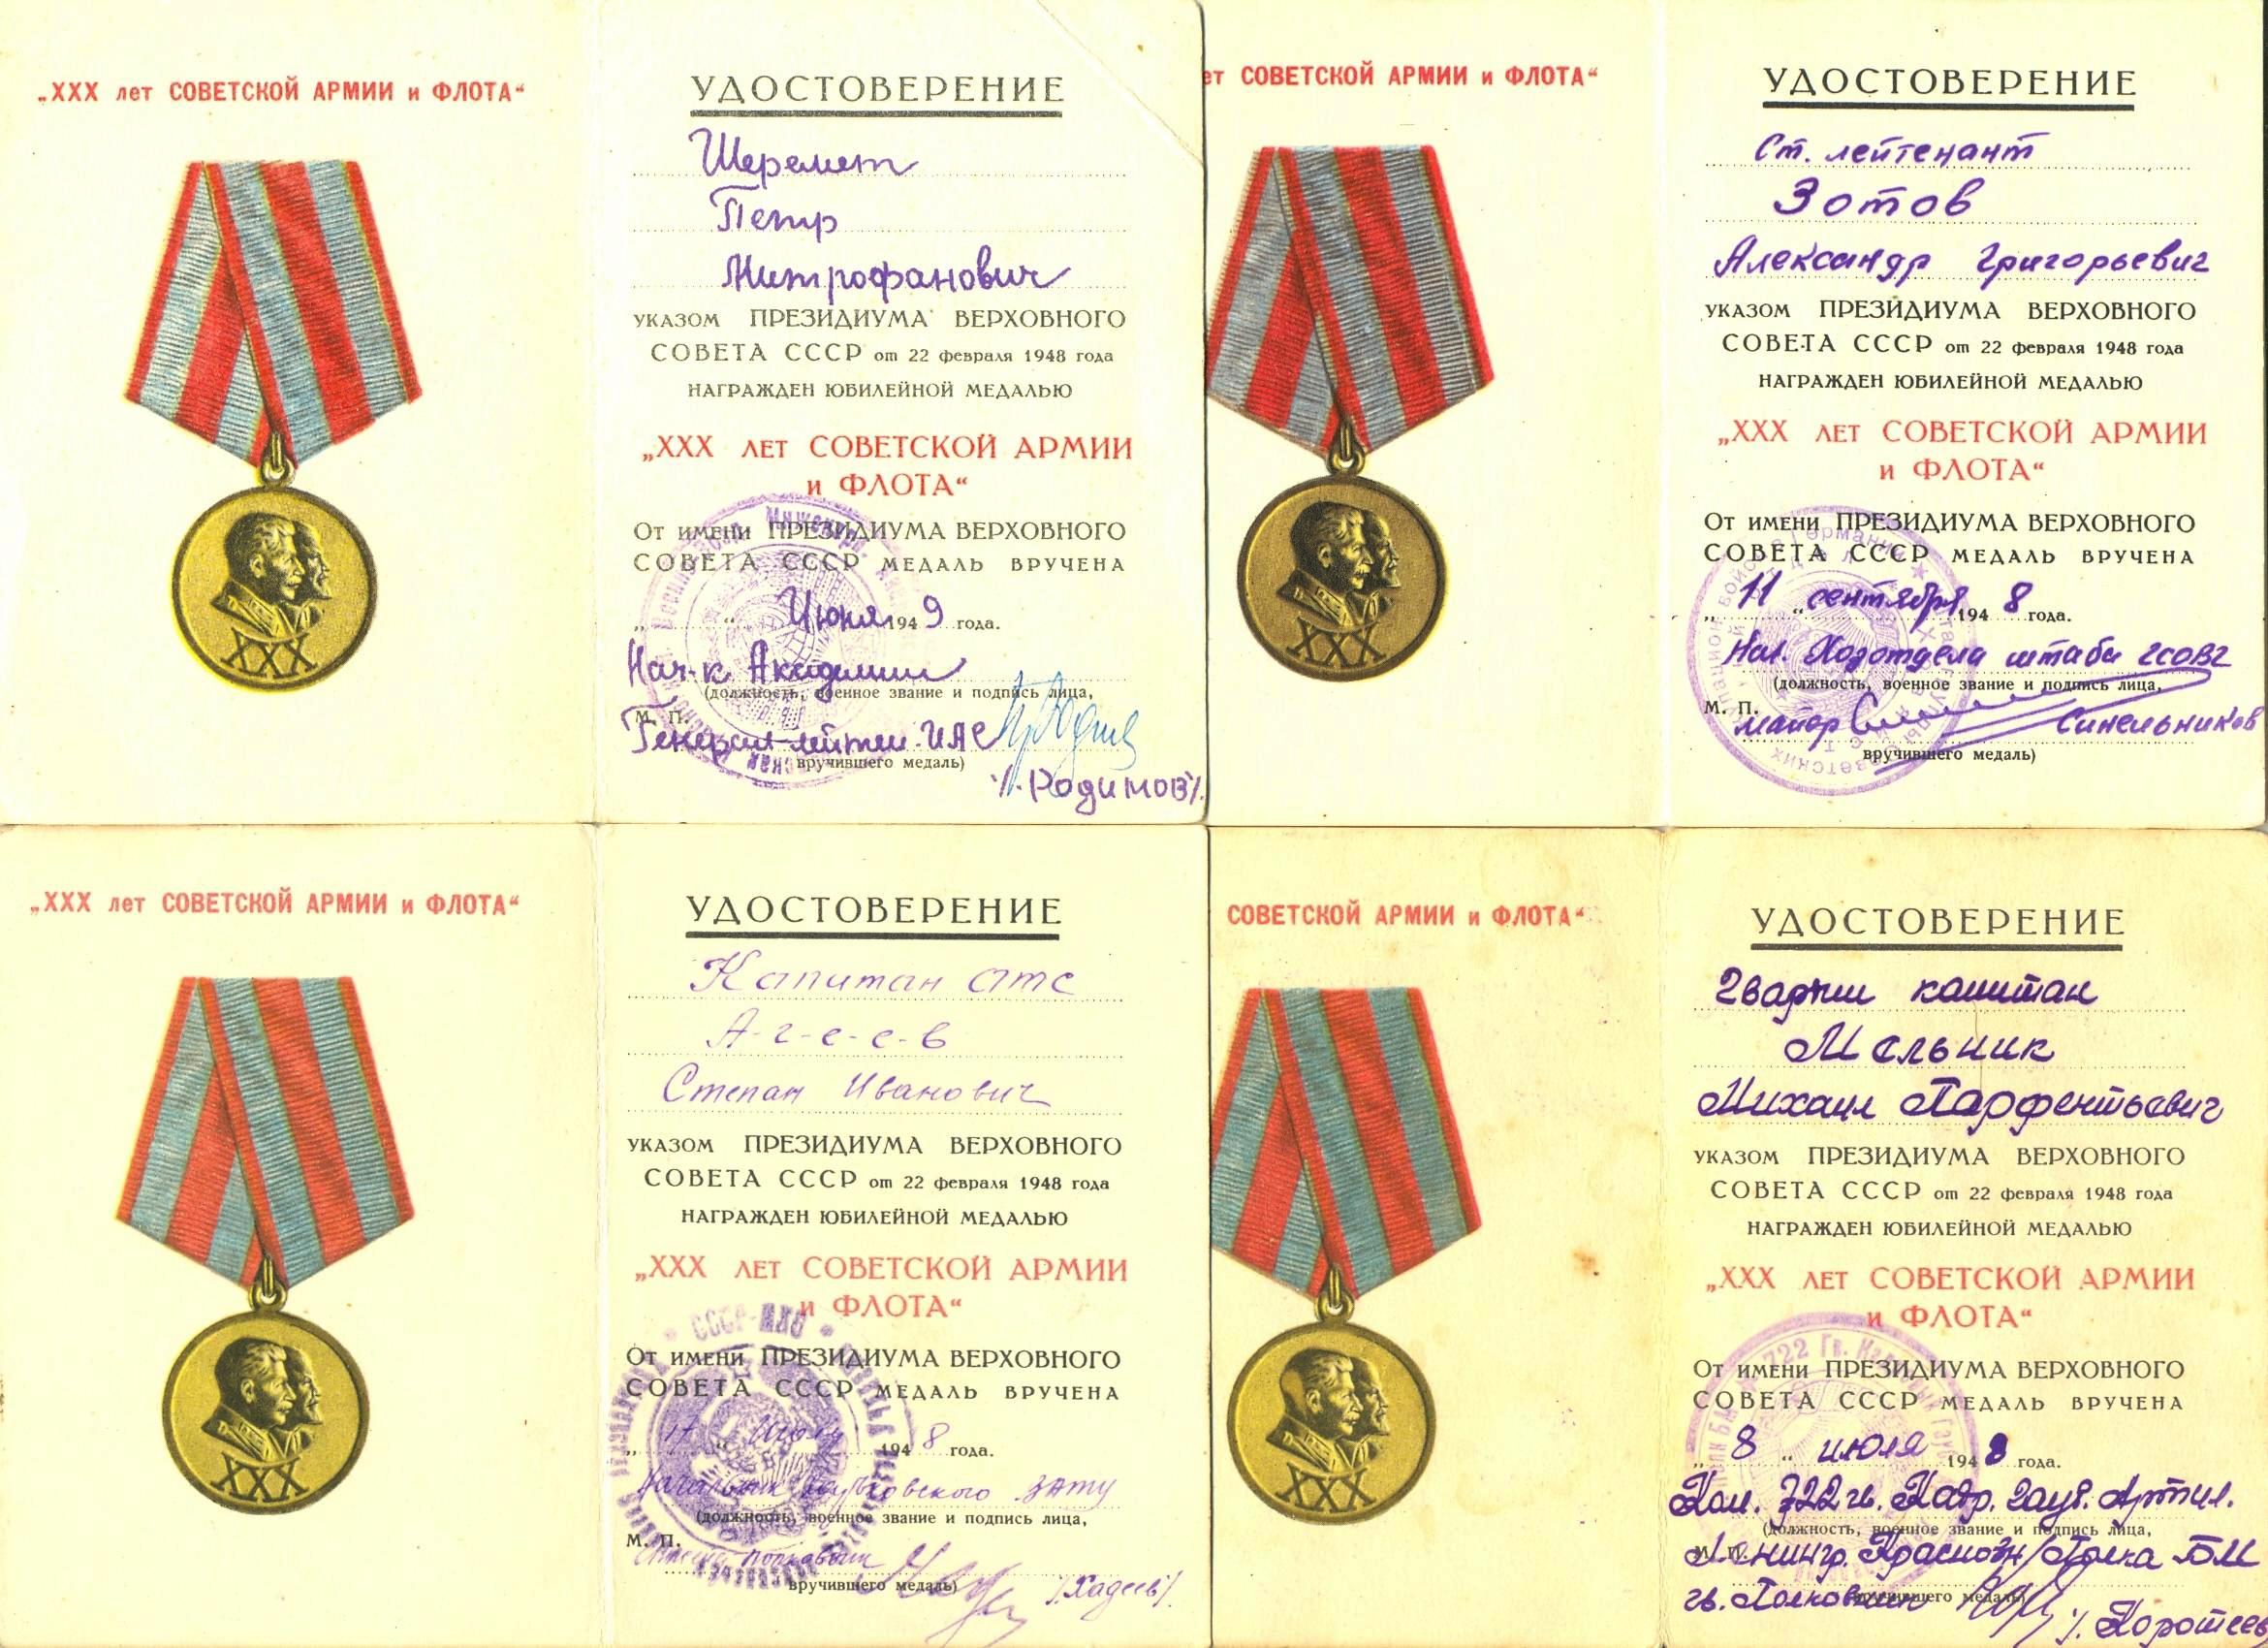 „XXX лет СОВЕТСКОЙ АРМИИ и ФЛОТА“
XXX
УДОСТОВЕРЕНИЕ
Шеремет
Петр
Митрофанович
УКАЗОМ ПРЕЗИДИУМА ВЕРХОВНОГО
СОВЕТА СССР от 22 февраля 1948 года
НАГРАЖДЕН ЮБИЛЕЙНОЙ МЕДАЛЬЮ
„XXX ЛЕТ СОВЕТСКОЙ АРМИИ
и ФЛОТА“
От имени ПРЕЗИДИУМА ВЕРХОВНОГО
СОВЕТА СССР МЕДАЛЬ ВРУЧЕНА
„ “ Июня 1949 года.
Нач-к Академии
(должность, военное звание и подпись лица,
М. П.
Генерал-лейтен. ИАС
вручившего медаль)
/Родимов/.
ет СОВЕТСКОЙ АРМИИ и ФЛОТА“
XXX
УДОСТОВЕРЕНИЕ
Ст. лейтенант
Зотов
Александр Григорьевич
УКАЗОМ ПРЕЗИДИУМА ВЕРХОВНОГО
СОВЕТА СССР от 22 февраля 1948 года
НАГРАЖДЕН ЮБИЛЕЙНОЙ МЕДАЛЬЮ
„XXX ЛЕТ СОВЕТСКОЙ АРМИИ
и ФЛОТА“
От имени ПРЕЗИДИУМА ВЕРХОВНОГО
СОВЕТА СССР МЕДАЛЬ ВРУЧЕНА
„11“ сентября 1948 года.
Нач. Хозотдела штаба ГСОВГ
(должность, военное звание и подпись лица,
М. П.
майор Синельников
вручившего медаль)
„XXX лет СОВЕТСКОЙ АРМИИ и ФЛОТА“
XXX
УДОСТОВЕРЕНИЕ
Капитан атс
А-г-е-е-в
Степан Иванович
УКАЗОМ ПРЕЗИДИУМА ВЕРХОВНОГО
СОВЕТА СССР от 22 февраля 1948 года
НАГРАЖДЕН ЮБИЛЕЙНОЙ МЕДАЛЬЮ
„XXX ЛЕТ СОВЕТСКОЙ АРМИИ
и ФЛОТА“
СССР-МВС
От имени ПРЕЗИДИУМА ВЕРХОВНОГО
СОВЕТА СССР МЕДАЛЬ ВРУЧЕНА
„17“ 1948 года.
Начальник
(должность, военное звание и подпись лица,
М. П.
полковник
вручившего медаль)
/Хадеев/.
СОВЕТСКОЙ АРМИИ и ФЛОТА“
XXX
УДОСТОВЕРЕНИЕ
Гвардии капитан
Мельник
Михаил Парфентьевич
УКАЗОМ ПРЕЗИДИУМА ВЕРХОВНОГО
СОВЕТА СССР от 22 февраля 1948 года
НАГРАЖДЕН ЮБИЛЕЙНОЙ МЕДАЛЬЮ
„XXX ЛЕТ СОВЕТСКОЙ АРМИИ
и ФЛОТА“
От имени ПРЕЗИДИУМА ВЕРХОВНОГО
СОВЕТА СССР МЕДАЛЬ ВРУЧЕНА
„8“ июля 1948 года.
Ком. 722 гв. Кадр. гауб. Артил.
(должность, военное звание и подпись лица,
М. П.
Ленингр. Краснозн/Полка БМ
гв. Полковник
вручившего медаль)
/. Коротеев